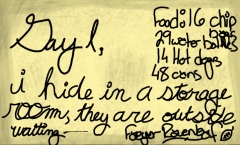 Day 1,
i hide in a storage
room, they are outside
waiting
Food: 16 chip
29 water bottles
14 Hot dogs
48 cans